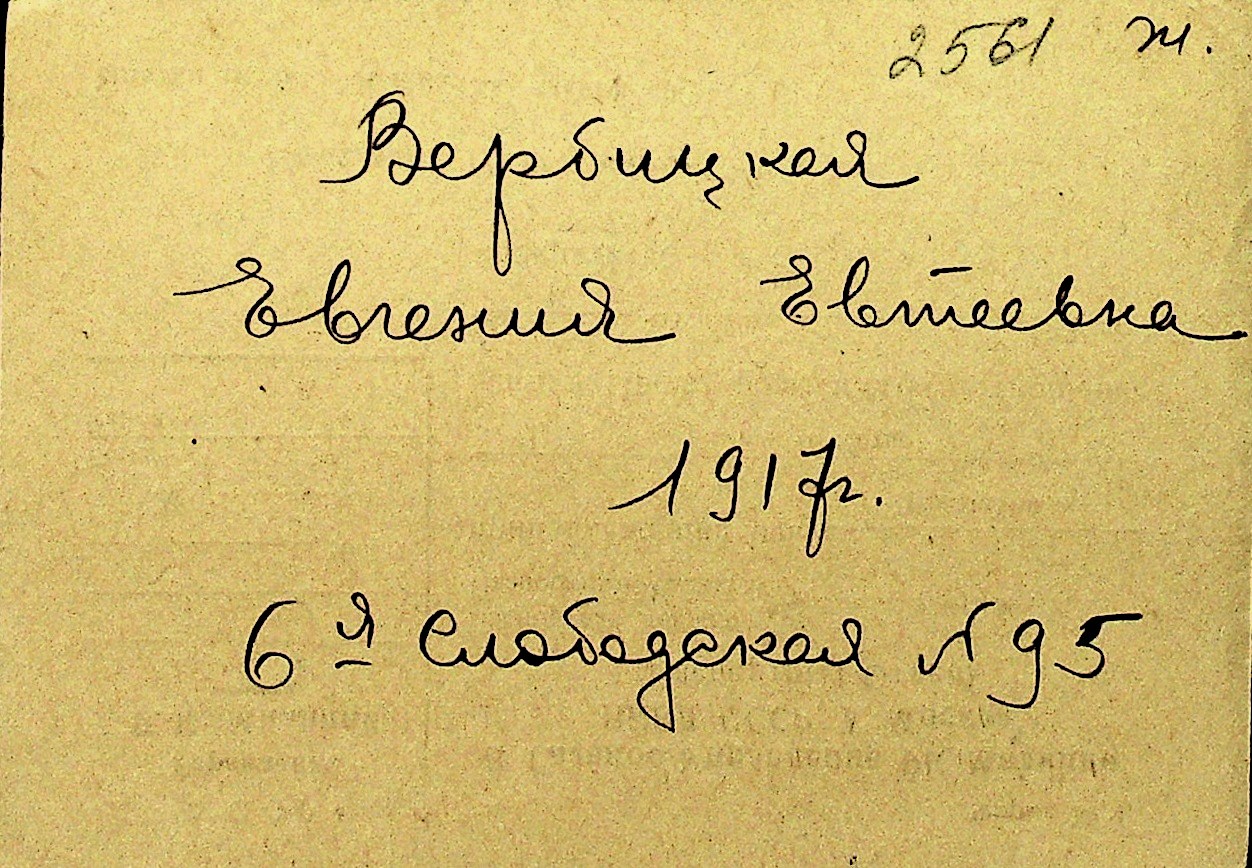 2561 ж.
Вербицкая
Евгения Евтеевна
1917г.
6я Слободская N 95